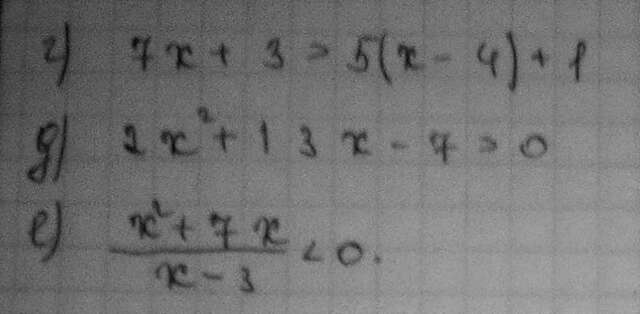 г) 7x + 3 > 5(x - 4) + 1
д) 2x² + 13x - 7 > 0
е) (x² + 7x)/(x - 3) < 0.